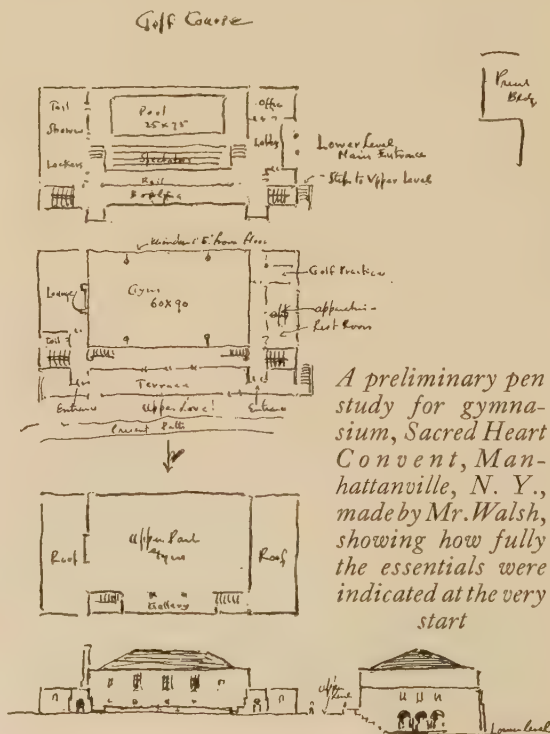 Golf Course
Present
Bldg
Toil
Shower
Lockers
Pool
25 x 75
Spectators
Rail
Bowling
Office
Lobby
Lower Level
Main Entrance
Steps to Upper Level
Windows 5' from Floor
Lounge
Toil
Gym
60 x 90
Golf Practice
Rest Room
Terrace
Entrance
Upper Level
Entrance
Present Path
Roof
Upper Part
Gym
Roof
Gallery
Lower Level
A preliminary pen
study for gymna-
sium, Sacred Heart
Convent, Man-
hattanville, N. Y.,
made by Mr. Walsh,
showing how fully
the essentials were
indicated at the very
start